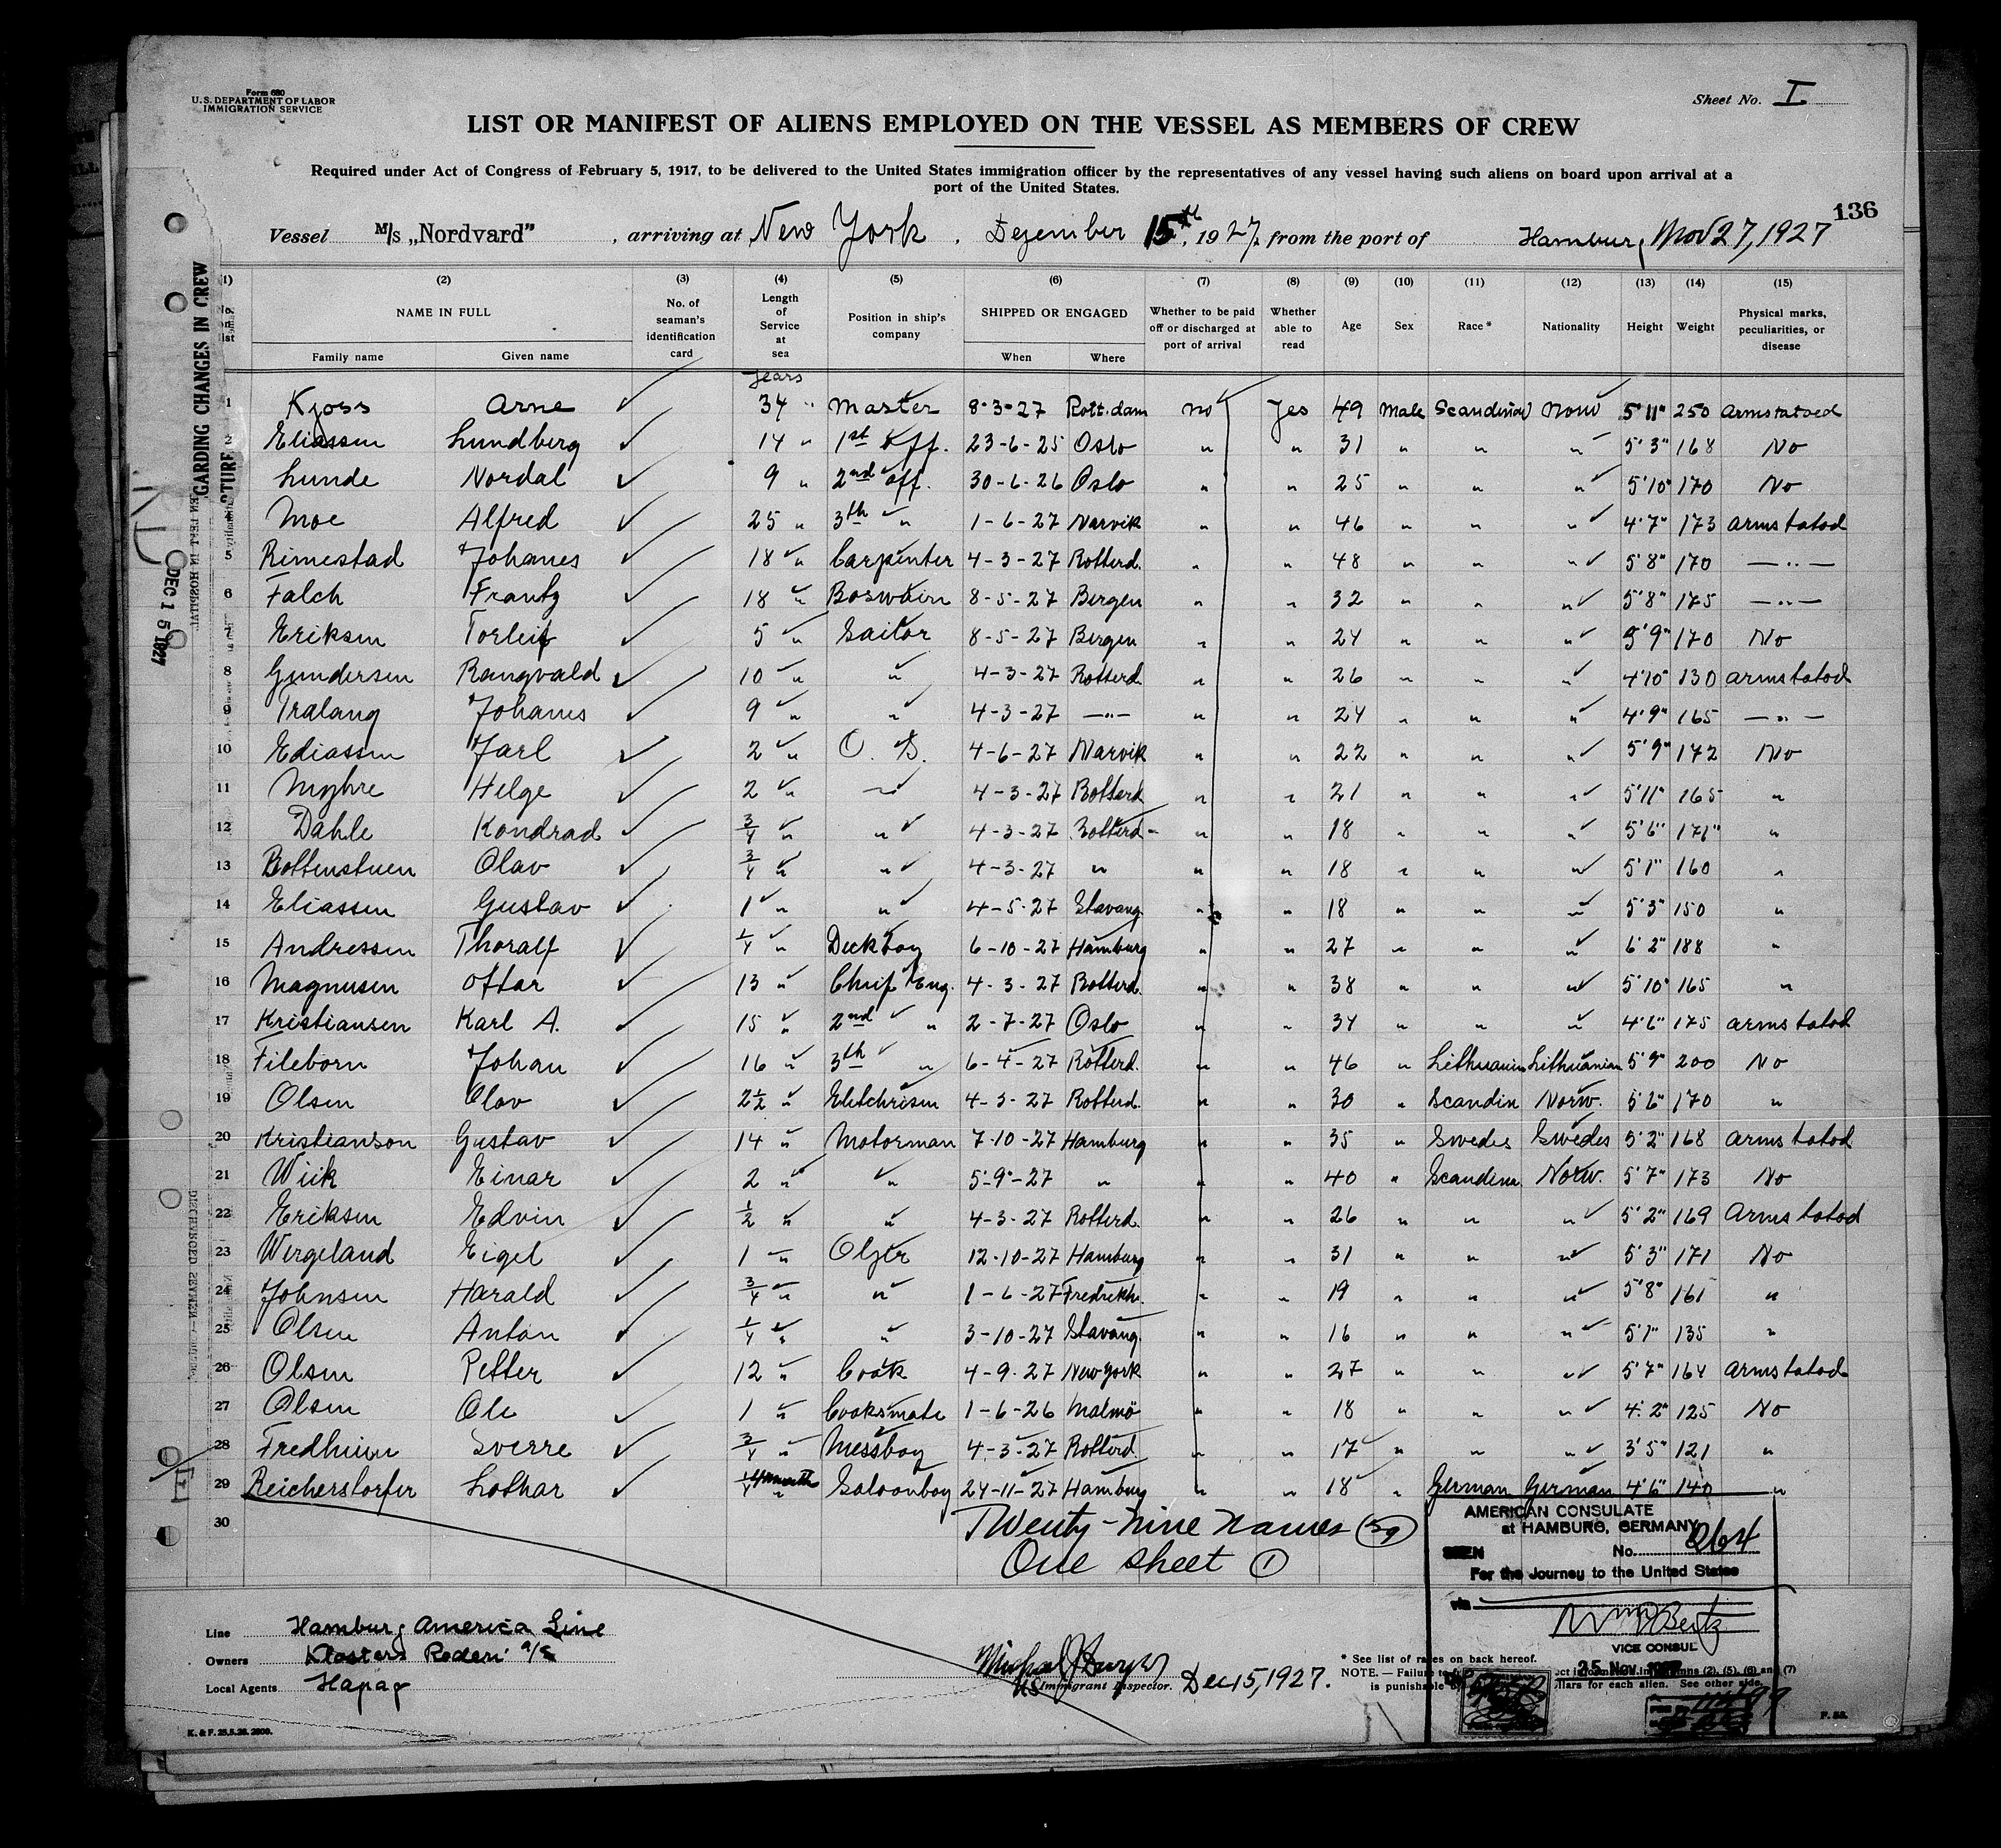 Form 680
U.S. DEPARTMENT OF LABOR
IMMIGRATION SERVICE
Sheet No. I
LIST OR MANIFEST OF ALIENS EMPLOYED ON THE VESSEL AS MEMBERS OF CREW
Required under Act of Congress of February 5, 1917, to be delivered to the United States immigration officer by the representatives of any vessel having such aliens on board upon arrival at a
port of the United States.
136
Vessel M/s „Nordvard" , arriving at New York , Dezember 15th, 1927, from the port of Hamburg Nov 27, 1927
(1) (2) (3) (4) (5) (6) (7) (8) (9) (10) (11) (12) (13) (14) (15)
No. on list NAME IN FULL Family name Given name No. of seaman's identification card Length of Service at sea Position in ship's company SHIPPED OR ENGAGED When Where Whether to be paid off or discharged at port of arrival Whether able to read Age Sex Race* Nationality Height Weight Physical marks, peculiarities, or disease
years
1 Kjoss Arne 34 " Master 8-3-27 Rott.dam no Yes 49 Male Scandinav Norw 5'11" 250 Armstatoed
2 Eliassen Lundberg 14 " 1st Off. 23-6-25 Oslo " " 31 " " " 5'3" 168 No
3 Lunde Nordal 9 " 2nd Off. 30-6-26 Oslo " " 25 " " " 5'10" 170 No
4 Moe Alfred 25 " 3th " 1-6-27 Narvik " " 46 " " " 4'7" 173 armstatod
5 Rimestad Johanes 18 " Carpenter 4-3-27 Rotterd. " " 48 " " " 5'8" 170 —"—
6 Falch Frantz 18 " Boswain 8-5-27 Bergen " " 32 " " " 5'8" 175 —"—
7 Eriksen Torleif 5 " Sailor 8-5-27 Bergen " " 24 " " " 5'9" 170 No
8 Gundersen Rangvald 10 " " 4-3-27 Rotterd. " " 26 " " " 4'10" 130 armstatod
9 Tralang Johanes 9 " " 4-3-27 —"— " " 24 " " " 4'9" 165 —"—
10 Ediassen Jarl 2 " O. S. 4-6-27 Narvik " " 22 " " " 5'9" 172 No
11 Myhre Helge 2 " " 4-3-27 Rotterd " " 21 " " " 5'11" 165 "
12 Dahle Kondrad 3/4 " " 4-3-27 Rotterd " " 18 " " " 5'6" 171" "
13 Bottenstuen Olav 3/4 " " 4-3-27 " " " 18 " " " 5'1" 160 "
14 Eliassen Gustav 1 " " 4-5-27 Stavang. " " 18 " " " 5'3" 150 "
15 Andressen Thoralf 1/4 " Deckboy 6-10-27 Hamburg " " 27 " " " 6'2" 188 "
16 Magnusen Ottar 13 " Chief Eng. 4-3-27 Rotterd. " " 38 " " " 5'10" 165 "
17 Kristiansen Karl A. 15 " 2nd " 2-7-27 Oslo " " 34 " " " 4'6" 175 armstatod
18 Fileborn Johan 16 " 3th " 6-4-27 Rotterd. " " 46 " Lithuanian Lithuanian 5'9" 200 No
19 Olsen Olav 2½ " Eletchrisen 4-3-27 Rotterd. " " 30 " Scandin Norw. 5'6" 170 "
20 Kristianson Gustav 14 " Motorman 7-10-27 Hamburg " " 35 " Swedes Swedes 5'2" 168 armstatod
21 Wiik Einar 2 " " 5-9-27 " " " 40 " Scandina Norw. 5'7" 173 No
22 Eriksen Edvin ½ " " 4-3-27 Rotterd. " " 26 " " " 5'2" 169 Armstatod
23 Wergeland Eigel 1 " Olzer 12-10-27 Hamburg " " 31 " " " 5'3" 171 No
24 Johnsen Harald 3/4 " " 1-6-27 Fredrekh. " " 19 " " " 5'8" 161 "
25 Olsen Anton 1/4 " " 3-10-27 Stavang. " " 16 " " " 5'1" 135 "
26 Olsen Petter 12 " Cook 4-9-27 New York " " 27 " " " 5'7" 164 armstatod
27 Olsen Ole 1 " Cooksmate 1-6-26 Malmö " " 18 " " " 4'2" 125 No
28 Fredheim Sverre 3/4 " Messboy 4-3-27 Rotterd " " 17 " " " 3'5" 121 "
29 Reicherstorfer Lothar 4 month Saloonboy 24-11-27 Hamburg " " 18 " German German 4'6" 140 "
30
Twenty-nine names (29)
One sheet (1)
AMERICAN CONSULATE
at HAMBURG, GERMANY
SEEN No. 264
For the Journey to the United States
via
VICE CONSUL
25 Nov 1927
Line Hamburg America Line
Owners Klosters Rederi a/s
Local Agents Hapag
Immigrant Inspector. Dec 15, 1927.
* See list of races on back hereof.
K. & F. 25.5.26. 2000.
F. 53.
GARDING CHANGES IN CREW
DEC 15 1927
DISCHARGED SEAMEN